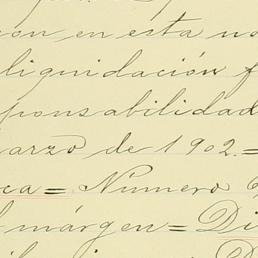 con en esta no
liquidación f
ponsabilidad
arzo de 1902.=
ca = Numero
l márgen = Di